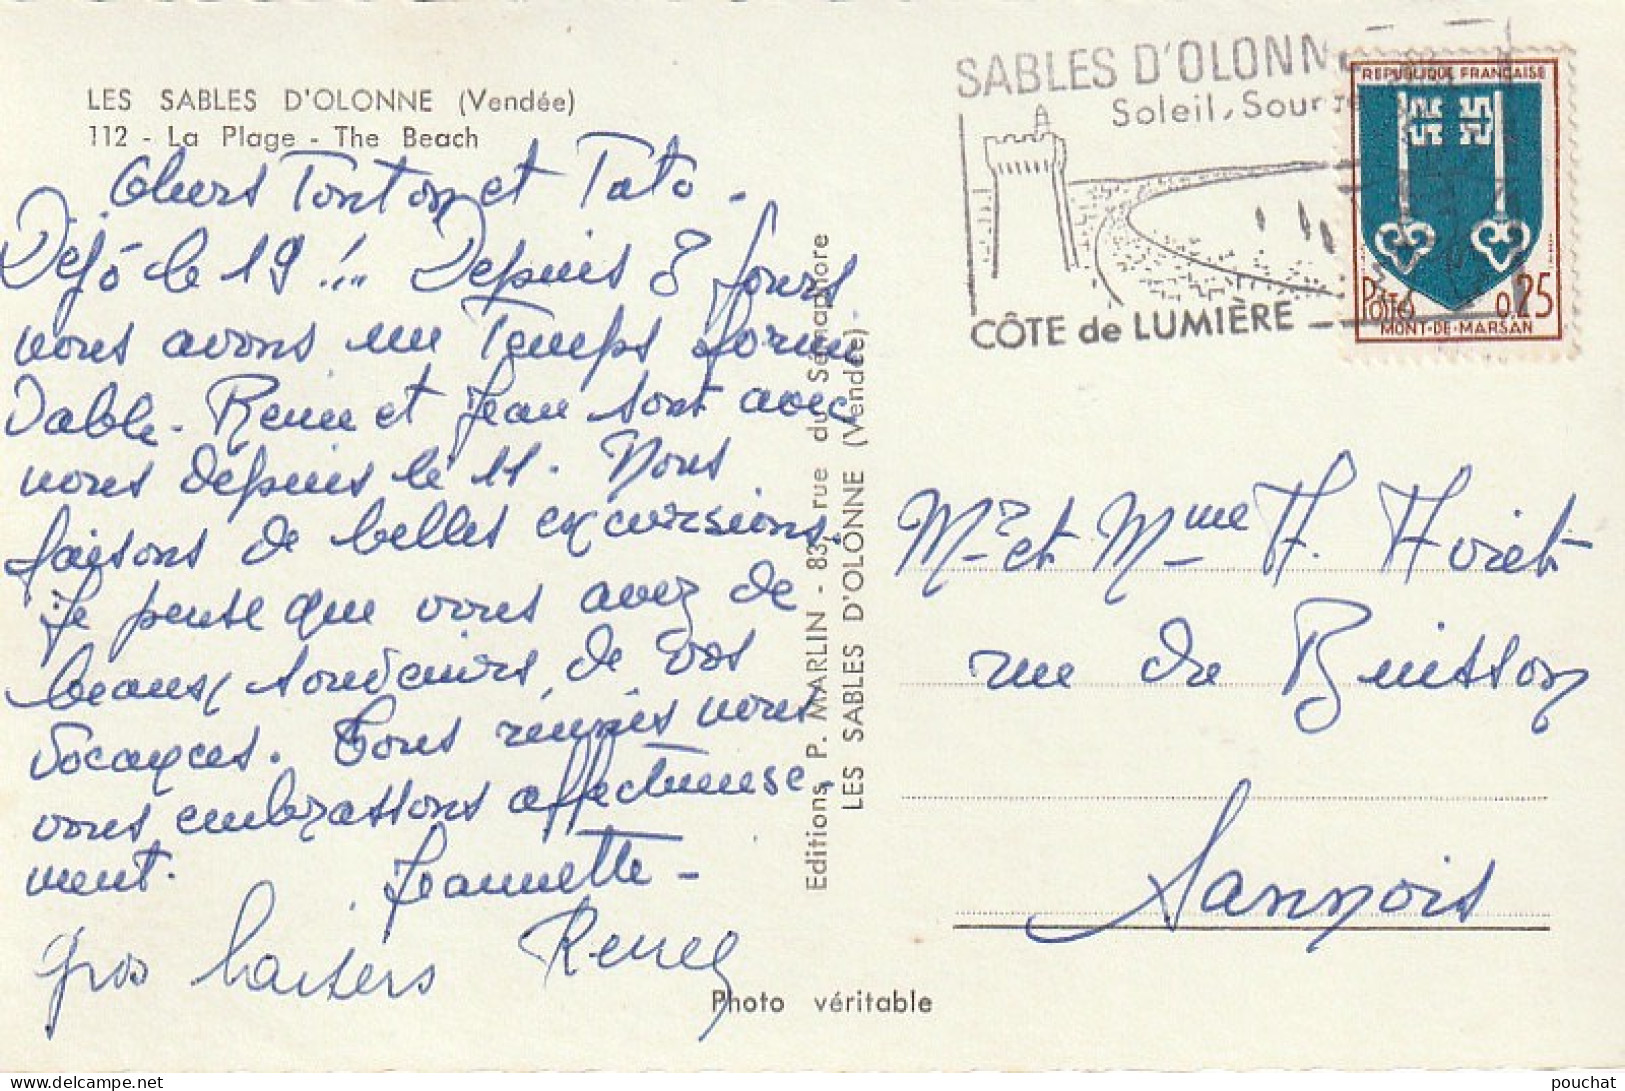 LES SABLES D'OLONNE (Vendée)
112 - La Plage - The Beach
Chers Tonton et Tata -
Déjà le 19 !... Depuis 8 jours
nous avons un Temps formi
dable. Rémi et Jean sont avec
nous depuis le 11. Nous
faisons de belles excursions.
Je pense que vous avez de
beaux souvenirs de vos
vacances. Tous réunis nous
vous embrassons affectueuse
ment. Jeannette -
gros baisers
Editions P. MARLIN - 83, rue du Sémaphore
LES SABLES D'OLONNE (Vendée)
Photo véritable
SABLES D'OLONNE
Soleil, Sour
CÔTE de LUMIÈRE
REPUBLIQUE FRANÇAISE
POSTES 0,25
MONT-DE-MARSAN
Mr et Mme H. Horiet
rue du Buisson
Sannois
pouchat